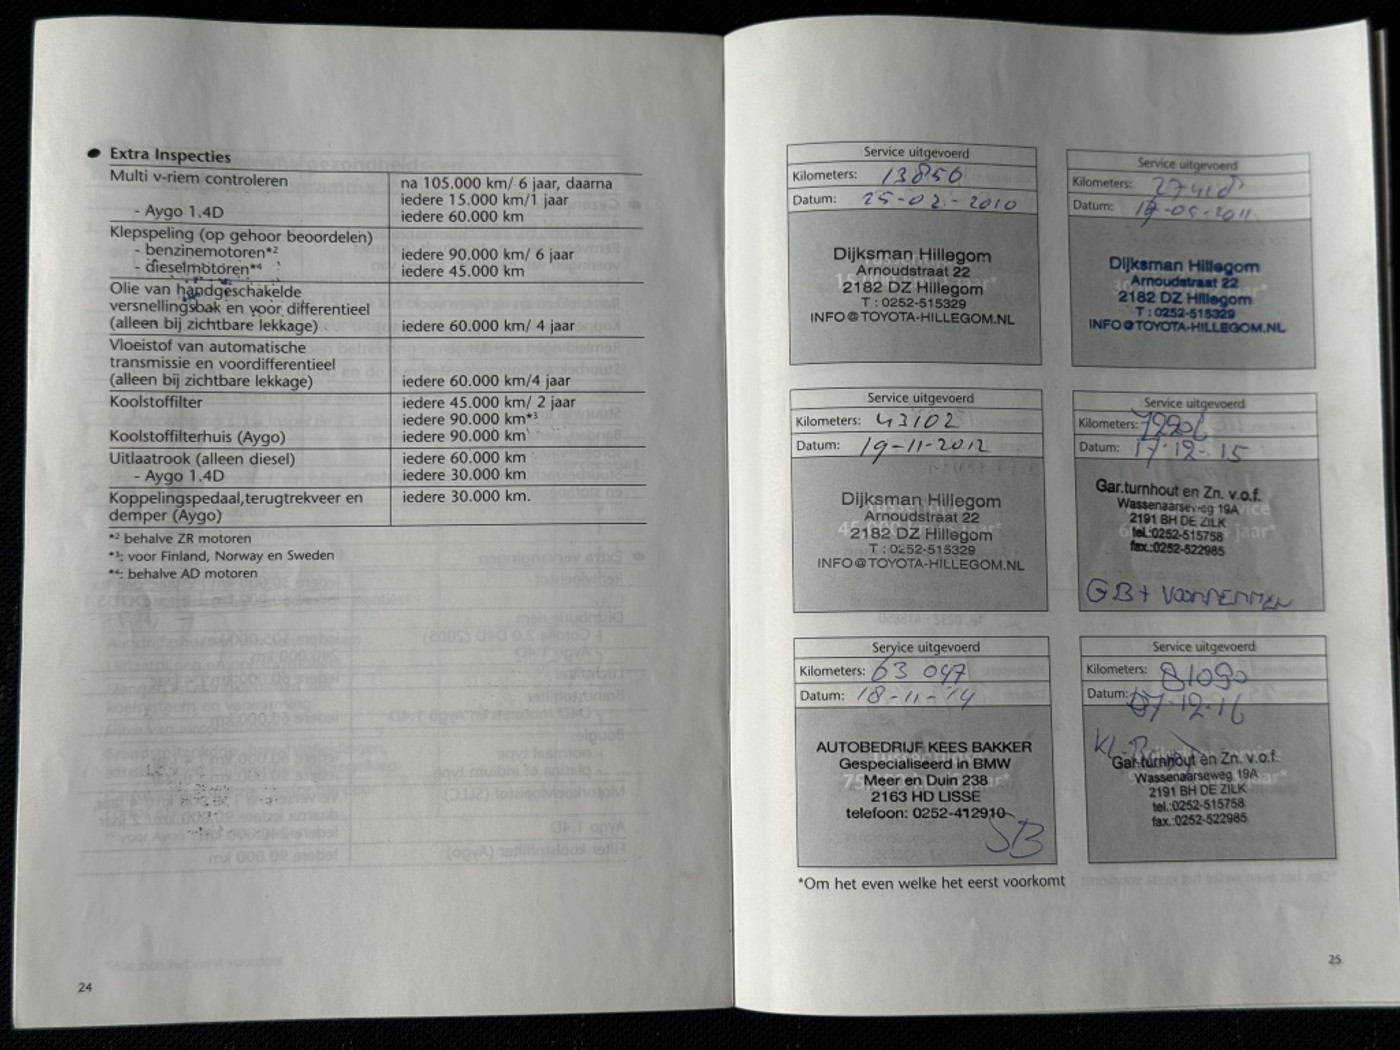 Extra Inspecties
Multi v-riem controleren na 105.000 km/ 6 jaar, daarna
iedere 15.000 km/1 jaar
- Aygo 1.4D iedere 60.000 km
Klepspeling (op gehoor beoordelen)
- benzinemotoren*2 iedere 90.000 km/ 6 jaar
- dieselmotoren*4 iedere 45.000 km
Olie van handgeschakelde
versnellingsbak en voor differentieel
(alleen bij zichtbare lekkage) iedere 60.000 km/ 4 jaar
Vloeistof van automatische
transmissie en voordifferentieel
(alleen bij zichtbare lekkage) iedere 60.000 km/4 jaar
Koolstoffilter iedere 45.000 km/ 2 jaar
iedere 90.000 km*3
Koolstoffilterhuis (Aygo) iedere 90.000 km
Uitlaatrook (alleen diesel) iedere 60.000 km
- Aygo 1.4D iedere 30.000 km
Koppelingspedaal,terugtrekveer en iedere 30.000 km.
demper (Aygo)
*2 behalve ZR motoren
*3: voor Finland, Norway en Sweden
*4: behalve AD motoren
24
Service uitgevoerd
Kilometers: 13856
Datum: 25-02-2010
Dijksman Hillegom
Arnoudstraat 22
2182 DZ Hillegom
T : 0252-515329
INFO@TOYOTA-HILLEGOM.NL
Service uitgevoerd
Kilometers:
Datum:
Dijksman Hillegom
Arnoudstraat 22
2182 DZ Hillegom
T : 0252-515329
INFO@TOYOTA-HILLEGOM.NL
Service uitgevoerd
Kilometers: 43102
Datum: 19-11-2012
Dijksman Hillegom
Arnoudstraat 22
2182 DZ Hillegom
T : 0252-515329
INFO@TOYOTA-HILLEGOM.NL
Service uitgevoerd
Kilometers:
Datum: 17-12-15
Gar.turnhout en Zn. v.o.f.
Wassenaarseweg 19A
2191 BH DE ZILK
tel.:0252-515758
fax.:0252-522985
GB+
Service uitgevoerd
Kilometers: 63 047
Datum: 18-11-14
AUTOBEDRIJF KEES BAKKER
Gespecialiseerd in BMW
Meer en Duin 238
2163 HD LISSE
telefoon: 0252-412910
SB
Service uitgevoerd
Kilometers: 81090
Datum: 07-12-16
Gar.turnhout en Zn. v.o.f.
Wassenaarseweg 19A
2191 BH DE ZILK
tel.:0252-515758
fax.:0252-522985
*Om het even welke het eerst voorkomt
25